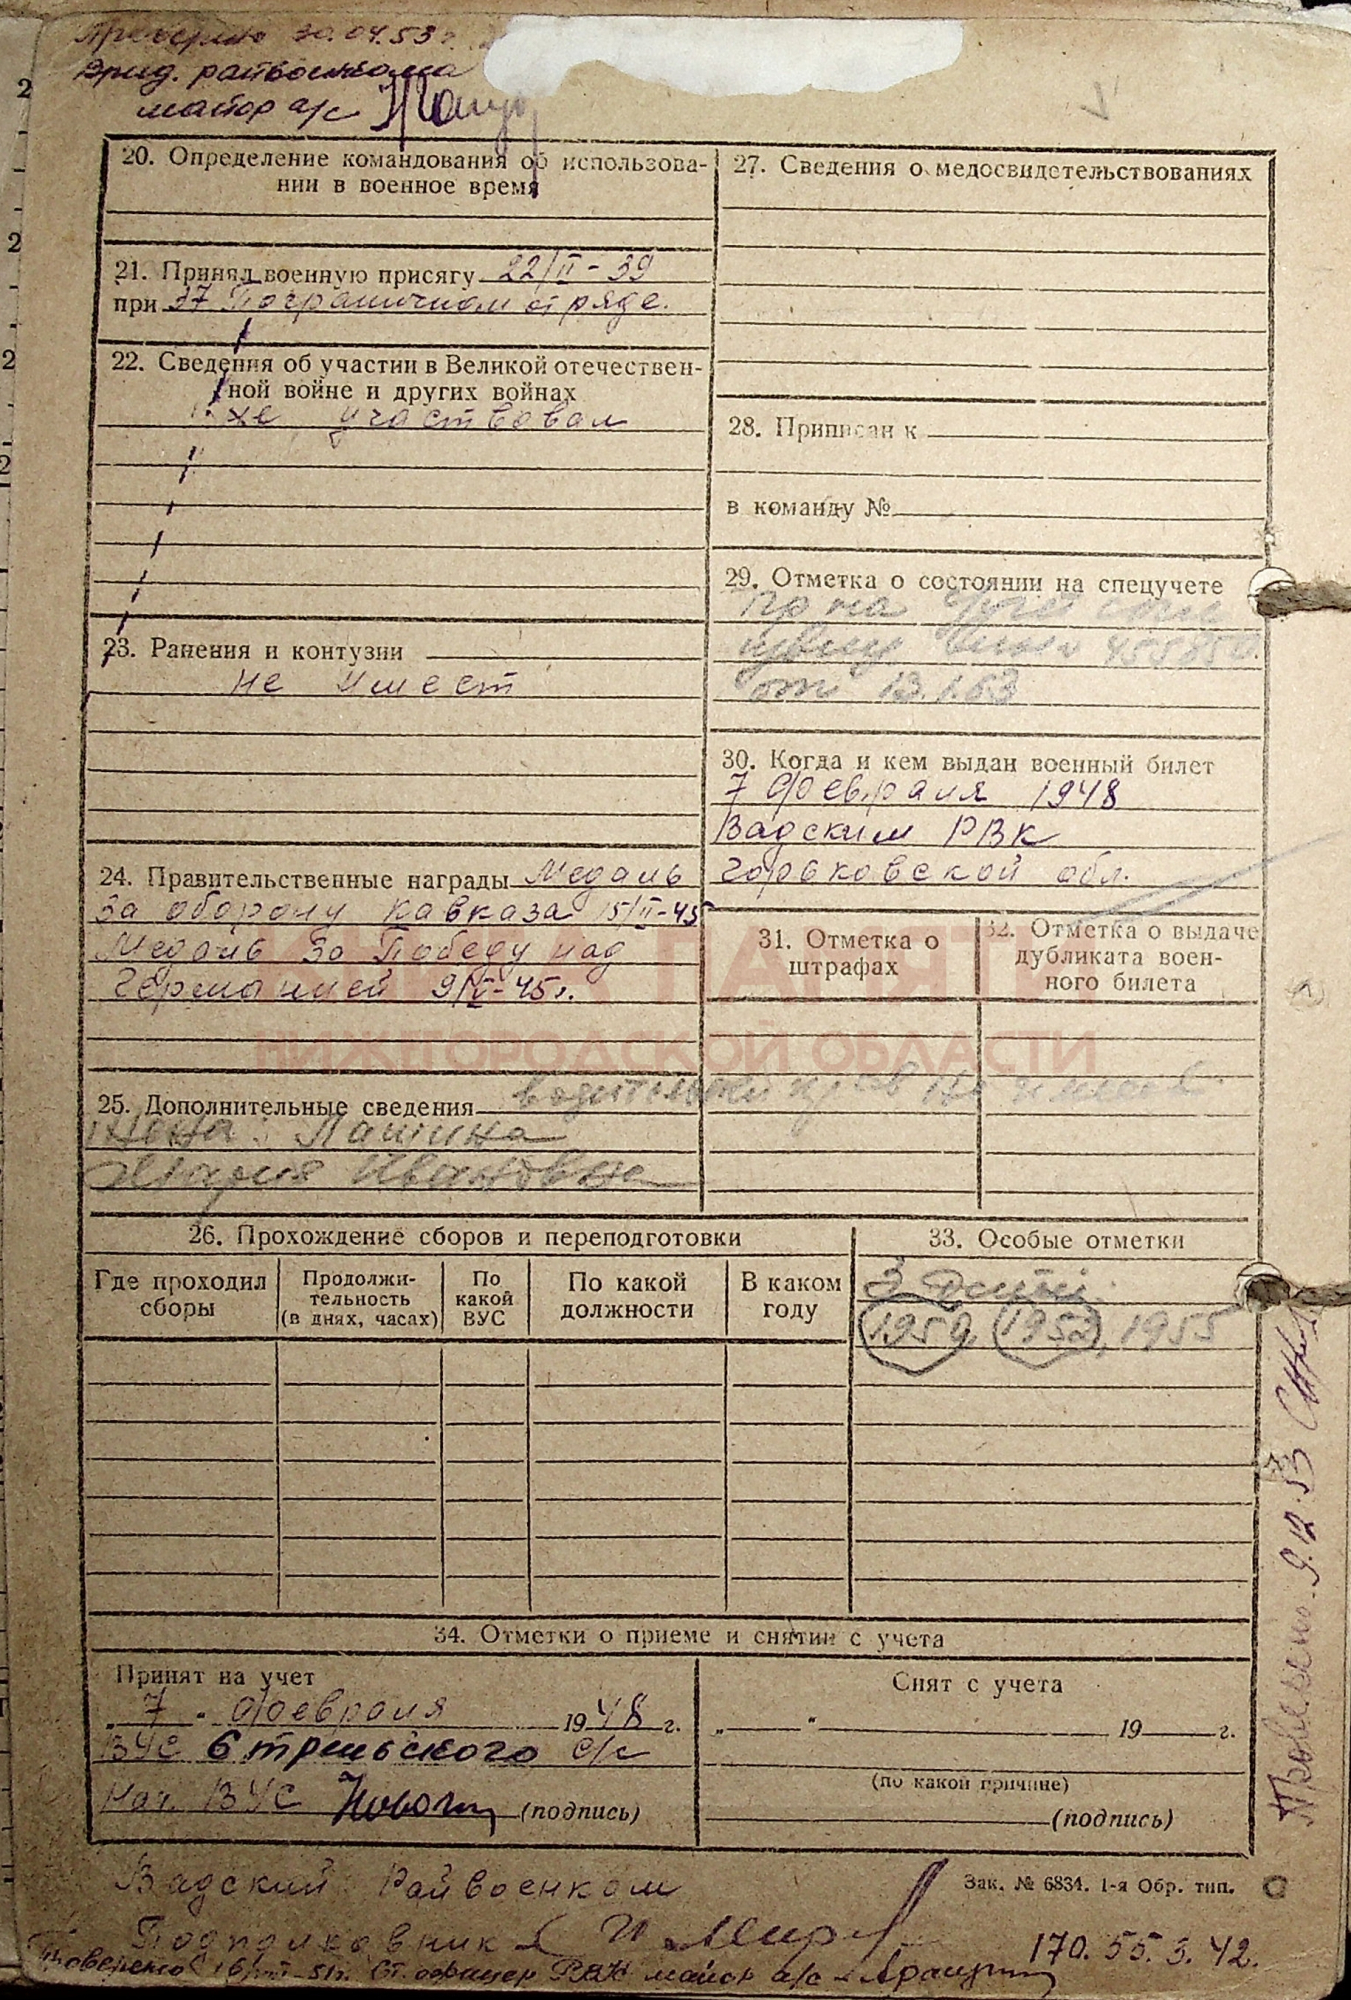 Проверено 20.04.53 г.
майор а/с
20. Определение командования об использова-
нии в военное время
21. Принял военную присягу 22/II-39
при 37 Пограничном отряде.
22. Сведения об участии в Великой отечествен-
ной войне и других войнах
не участвовал
23. Ранения и контузии
не имеет
24. Правительственные награды Медаль
За оборону Кавказа 15/II-45
Медаль За Победу над
Германией 9/V-45г.
25. Дополнительные сведения водительских прав не имеет.
Жена: Лашина
Мария Ивановна
27. Сведения о медосвидетельствованиях
28. Приписан к
в команду №
29. Отметка о состоянии на спецучете
от 13.1.63
30. Когда и кем выдан военный билет
7 февраля 1948
Вадским РВК
Горьковской обл.
31. Отметка о
штрафах
32. Отметка о выдаче
дубликата воен-
ного билета
КНИГА ПАМЯТИ
НИЖЕГОРОДСКОЙ ОБЛАСТИ
26. Прохождение сборов и переподготовки
Где проходил
сборы
Продолжи-
тельность
(в днях, часах)
По
какой
ВУС
По какой
должности
В каком
году
33. Особые отметки
3 детей.
1950, 1952, 1955
34. Отметки о приеме и снятии с учета
Принят на учет
„ 7 " февраля 1948 г.
ВУС с/с
Нач. ВУС (подпись)
Снят с учета
„ " 19 г.
(по какой причине)
(подпись)
Зак. № 6834. 1-я Обр. тип.
Вадский Райвоенком
Подполковник
170.55.3.42.
Проверено Ст. офицер РВК майор а/с
Проверено. 9.12.53